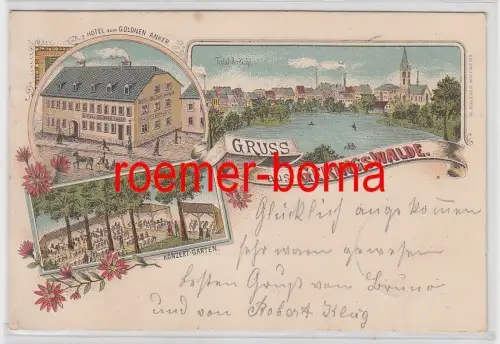 HOTEL ZUM GOLDNEN ANKER.
Totalansicht
GRUSS
AUS MEHRINGSWALDE.
roemer-borna
KONZERT-GARTEN.
Glücklich angekommen
sehr warm gewesen
besten Gruß von Bruno
und von Robert Klug